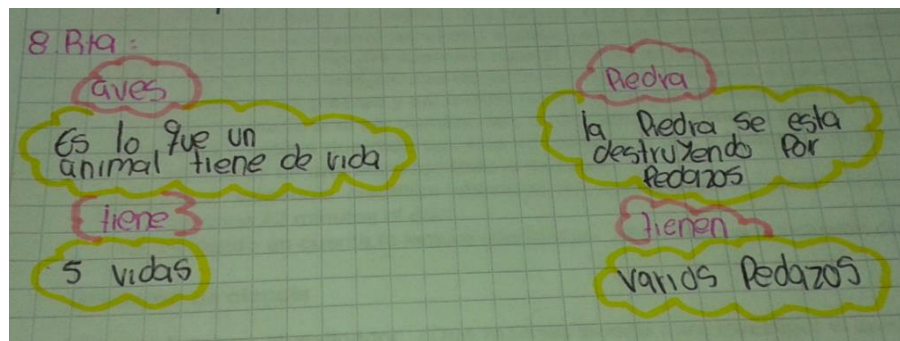 8. Rta:
aves
Es lo que un
animal tiene de vida
tiene
5 vidas
Piedra
la Piedra se esta
destruyendo Por
Pedazos
tienen
varios Pedazos